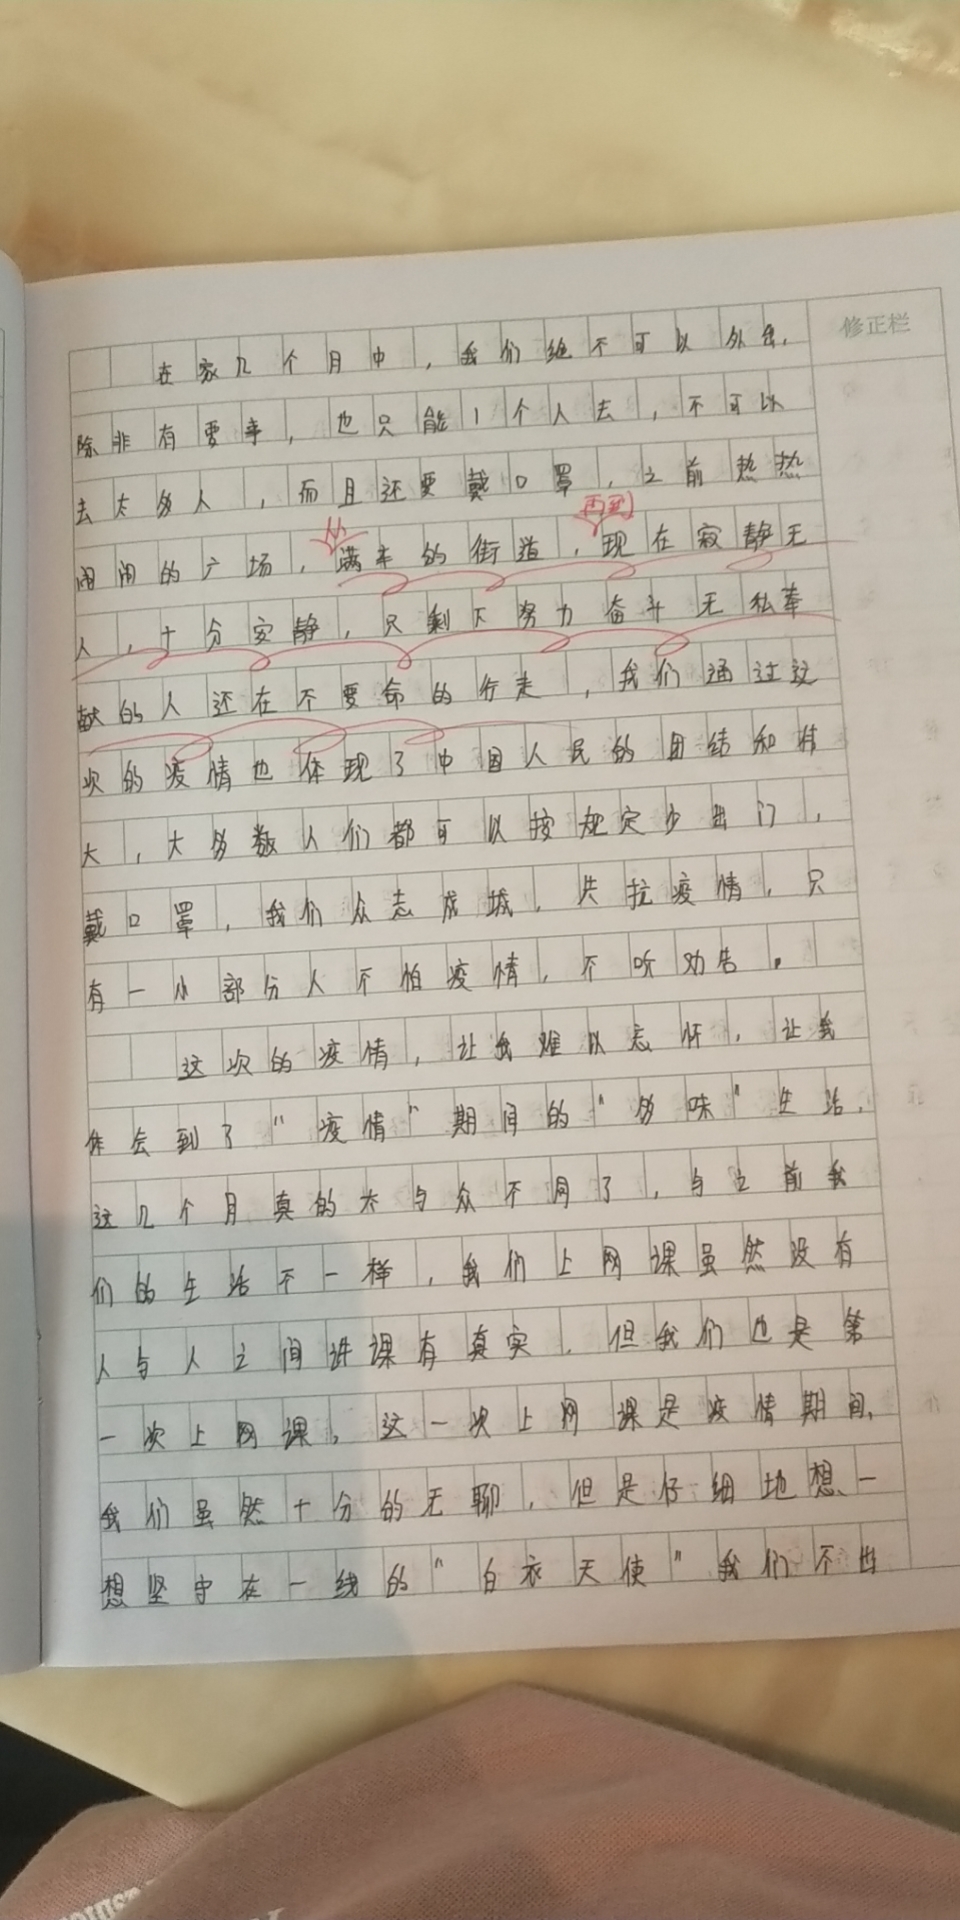 修正栏
在家几个月中，我们绝不可以外出，
除非有要事，也只能1个人去，不可以
去太多人，而且还要戴口罩，之前热热
从
再到
闹闹的广场，满车的街道，现在寂静无
人，十分安静，只剩下努力奋斗无私奉
献的人还在不要命的行走，我们通过这
次的疫情也体现了中国人民的团结和伟
大，大多数人们都可以按规定少出门，
戴口罩，我们众志成城，共抗疫情，只
有一小部分人不怕疫情，不听劝告。
这次的疫情，让我难以忘怀，让我
体会到了"疫情"期间的"多味"生活，
这几个月真的太与众不同了，与之前我
们的生活不一样，我们上网课虽然没有
人与人之间讲课有真实，但我们也是第
一次上网课，这一次上网课是疫情期间，
我们虽然十分的无聊，但是仔细地想一
想坚守在一线的"白衣天使"我们不出